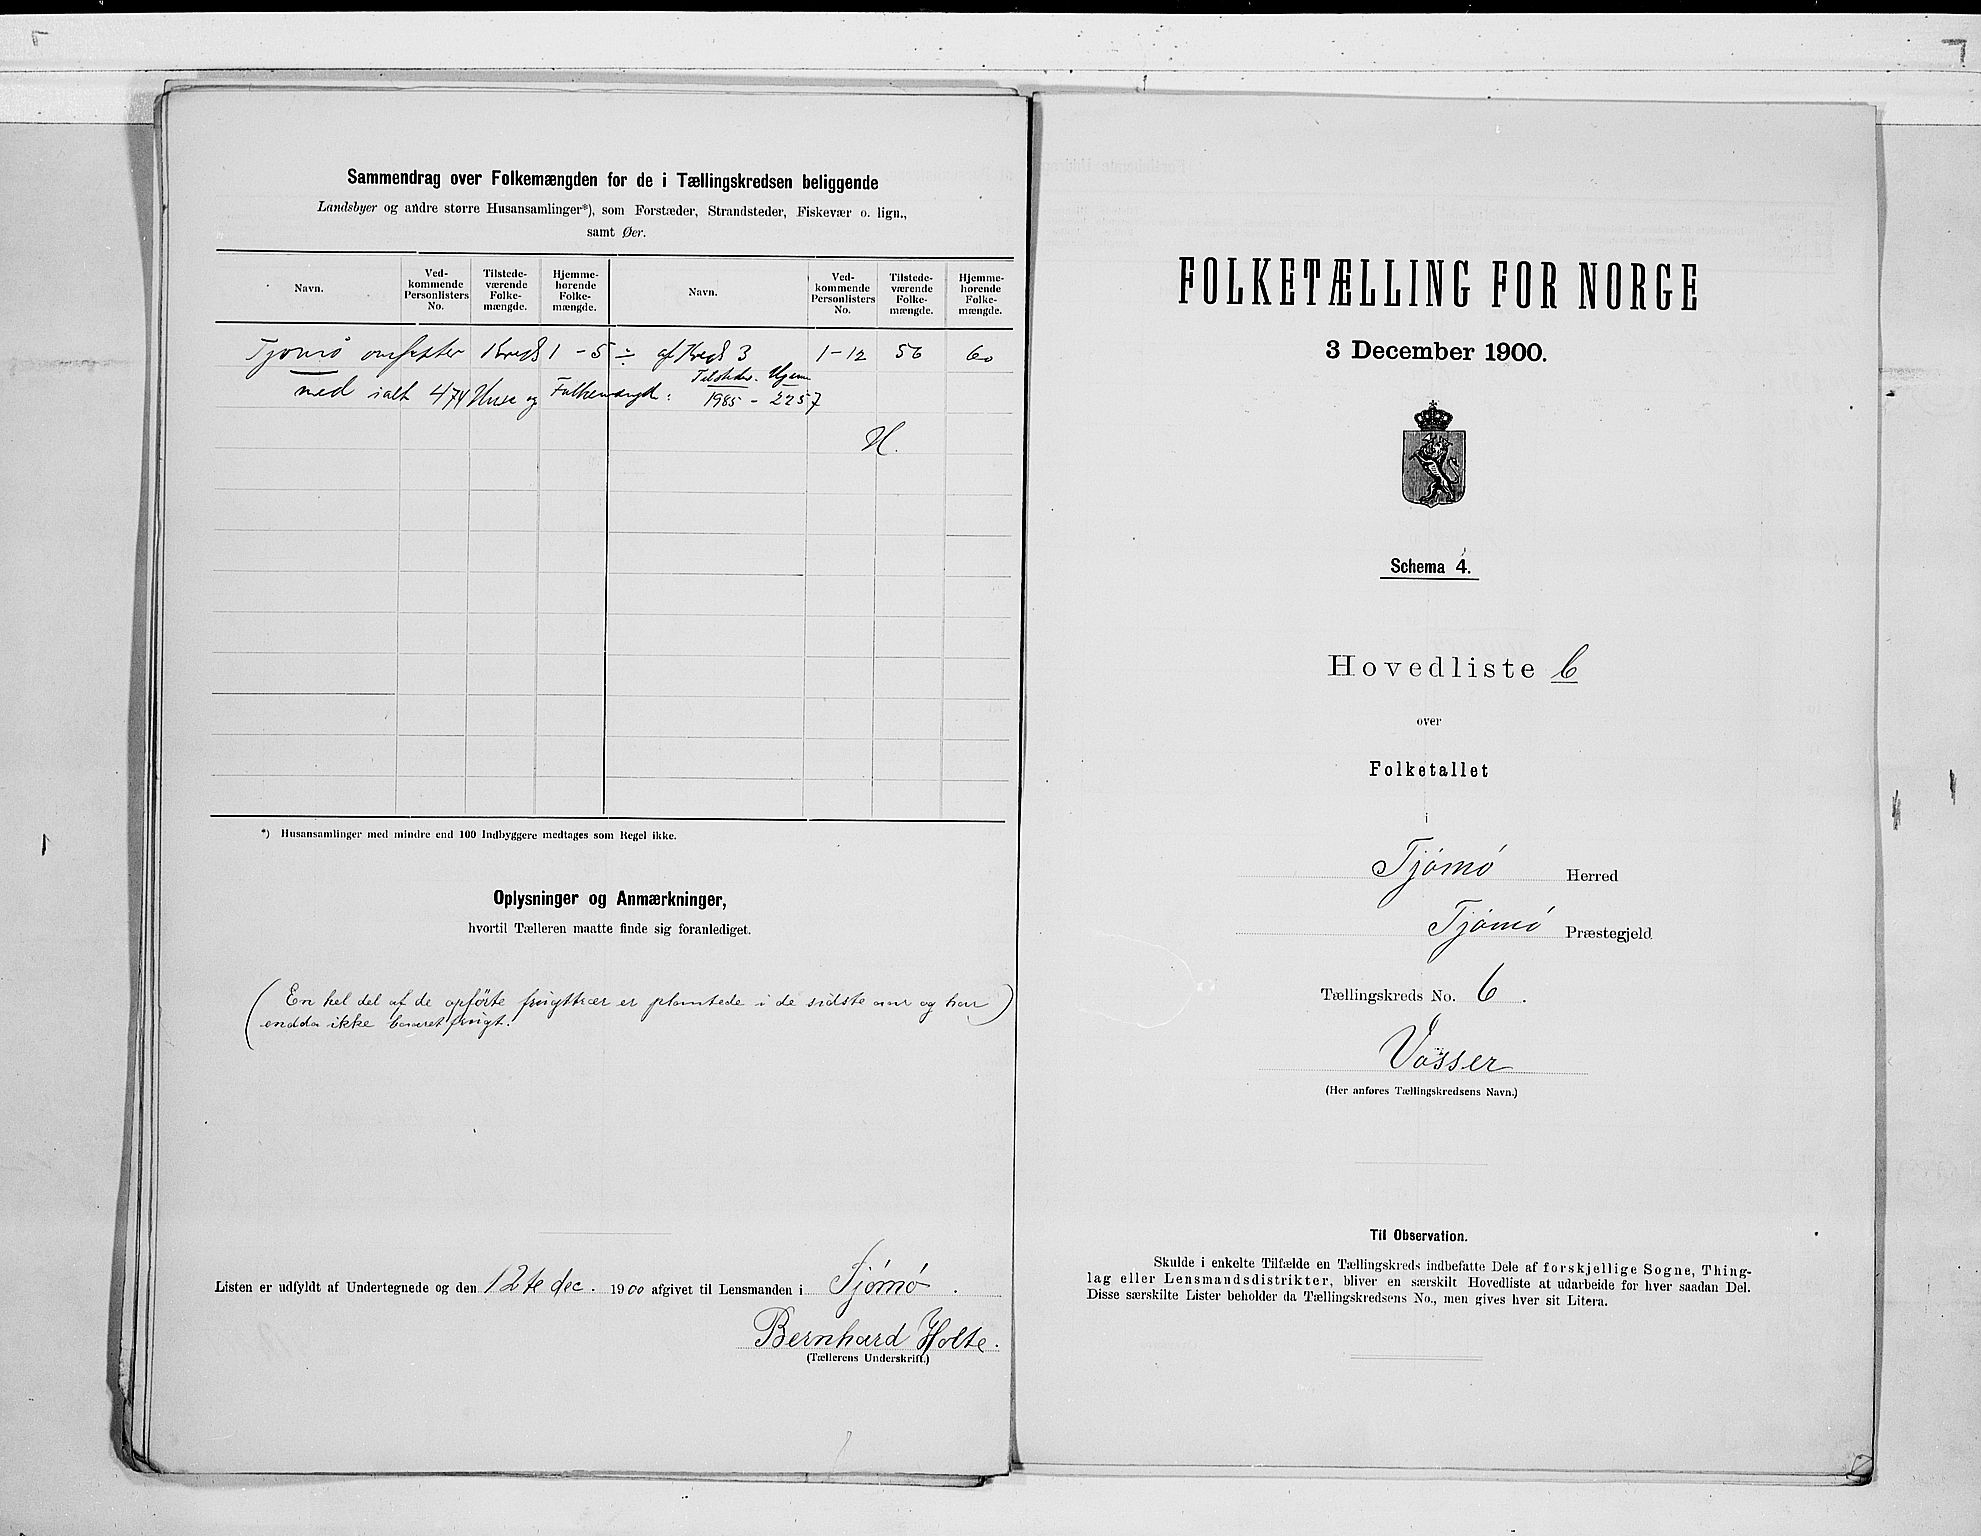 Sammendrag over Folkemængden for de i Tællingskredsen beliggende
Landsbyer og andre større Husansamlinger*), som Forstæder, Strandsteder, Fiskevær o. lign.,
samt Øer.
Navn.
Ved-
kommende
Personlisters
No.
Tilstede-
værende
Folke-
mængde.
Hjemme-
hørende
Folke-
mængde.
Navn.
Ved-
kommende
Personlisters
No.
Tilstede-
værende
Folke-
mængde.
Hjemme-
hørende
Folke-
mængde.
Tjømø omfatter Kreds 1 - 5 ÷ af Kreds 3 1-12 56 60
med ialt 474 Huse og Folkemængde: 1985 - 2257
H.
*) Husansamlinger med mindre end 100 Indbyggere medtages som Regel ikke.
Oplysninger og Anmærkninger,
hvortil Tælleren maatte finde sig foranlediget.
(En hel del af de opførte frugttrær er plantede i de sidste aar og har)
endda ikke baaret frugt.
Listen er udfyldt af Undertegnede og den 12te dec. 1900 afgivet til Lensmanden i Tjømø.
Bernhard Holte.
(Tællerens Underskrift.)
FOLKETÆLLING FOR NORGE
3 December 1900.
Schema 4.
Hovedliste 6
over
Folketallet
i
Tjømø Herred
Tjømø Præstegjeld
Tællingskreds No. 6.
Vasser
(Her anføres Tællingskredsens Navn.)
Til Observation.
Skulde i enkelte Tilfælde en Tællingskreds indbefatte Dele af forskjellige Sogne, Thing-
lag eller Lensmandsdistrikter, bliver en særskilt Hovedliste at udarbeide for hver saadan Del.
Disse særskilte Lister beholder da Tællingskredsens No., men gives hver sit Litera.